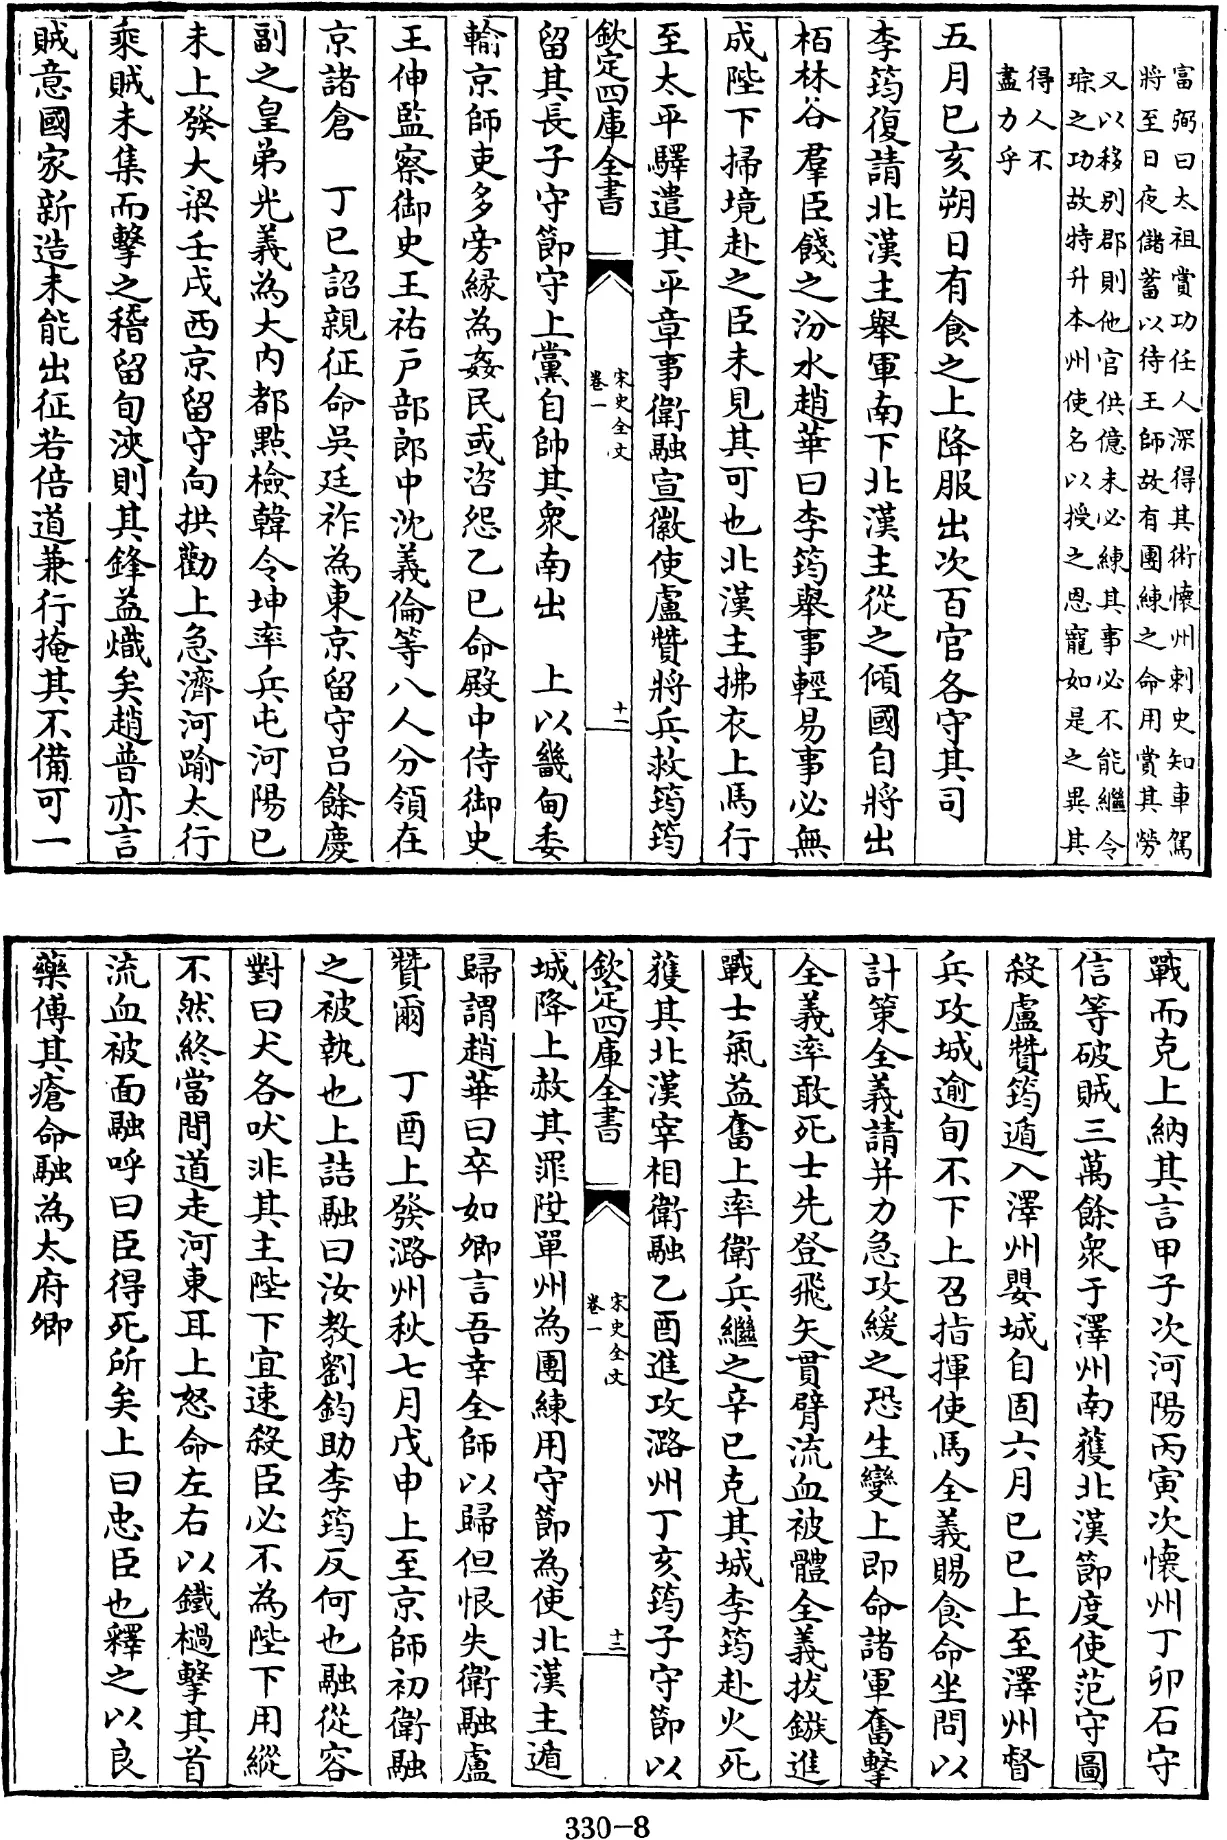 富弼曰太祖賞功任人深得其術懷州刺史知車駕
將至日夜儲蓄以待王師故有團練之命用賞其勞
又以移别郡則他官供億未必練其事必不能繼令
琮之功故特升本州使名以授之恩寵如是之異其
得人不
盡力乎
五月己亥朔日有食之上降服出次百官各守其司
李筠復請北漢主舉軍南下北漢主從之傾國自將出
栢林谷羣臣餞之汾水趙華曰李筠舉事輕易事必無
成陛下掃境赴之臣未見其可也北漢主拂衣上馬行
至太平驛遣其平章事衛融宣徽使盧贊將兵救筠筠
欽定四庫全書
宋史全文
卷一
十二
留其長子守節守上黨自帥其衆南出　上以畿甸委
輸京師吏多旁緣為姦民或咨怨乙巳命殿中侍御史
王伸監察御史王祐戶部郎中沈義倫等八人分領在
京諸倉　丁巳詔親征命吳廷祚為東京留守呂餘慶
副之皇弟光義為大内都點檢韓令坤率兵屯河陽己
未上發大梁壬戌西京留守向拱勸上急濟河踰太行
乘賊未集而擊之稽留旬浹則其鋒益熾矣趙普亦言
賊意國家新造未能出征若倍道兼行掩其不備可一
戰而克上納其言甲子次河陽丙寅次懷州丁卯石守
信等破賊三萬餘衆于澤州南獲北漢節度使范守圖
殺盧贊筠遁入澤州嬰城自固六月己巳上至澤州督
兵攻城逾旬不下上召指揮使馬全義賜食命坐問以
計策全義請并力急攻緩之恐生變上即命諸軍奮擊
全義率敢死士先登飛矢貫臂流血被體全義拔鏃進
戰士氣益奮上率衛兵繼之辛巳克其城李筠赴火死
獲其北漢宰相衛融乙酉進攻潞州丁亥筠子守節以
欽定四庫全書
宋史全文
卷一
十三
城降上赦其罪陞單州為團練用守節為使北漢主遁
歸謂趙華曰卒如卿言吾幸全師以歸但恨失衛融盧
贊爾　丁酉上發潞州秋七月戊申上至京師初衛融
之被執也上詰融曰汝教劉鈞助李筠反何也融從容
對曰犬各吠非其主陛下宜速殺臣必不為陛下用縱
不然終當間道走河東耳上怒命左右以鐵檛擊其首
流血被面融呼曰臣得死所矣上曰忠臣也釋之以良
藥傅其瘡命融為太府卿
330-8